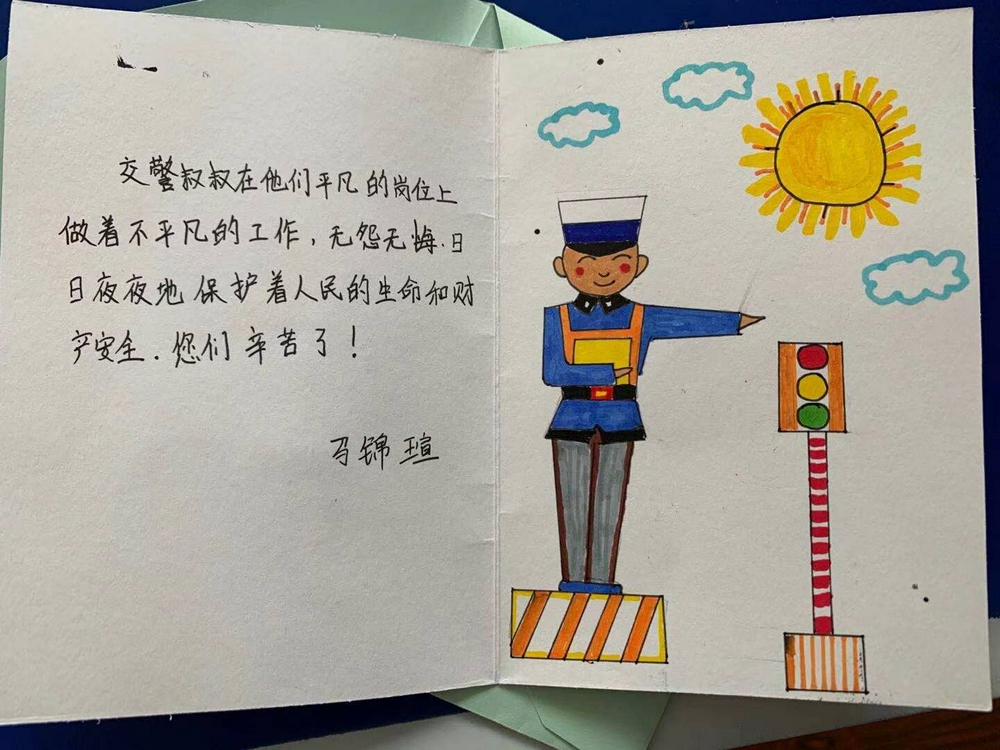 交警叔叔在他们平凡的岗位上
做着不平凡的工作，无怨无悔.日
日夜夜地保护着人民的生命和财
产安全.您们辛苦了！
马锦瑄